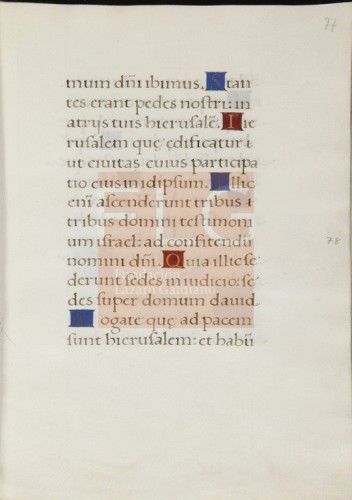 74
mum dñi ibimus. Stan
tes erant pedes nostri: in
atrijs tuis hierusalē. Hie
rusalem quę ędificatur i
ut ciuitas cuius participa
tio eius in idipsum. Illic
enī ascenderunt tribus i
tribus domini testimoni
um israel: ad confitendū
nomini dñi. Quia illic se
derunt sedes in iudicio: se
des super domum dauid.
Rogate quę ad pacem
sunt hierusalem: et habū
78
FLG
Fundación
Lázaro Galdiano